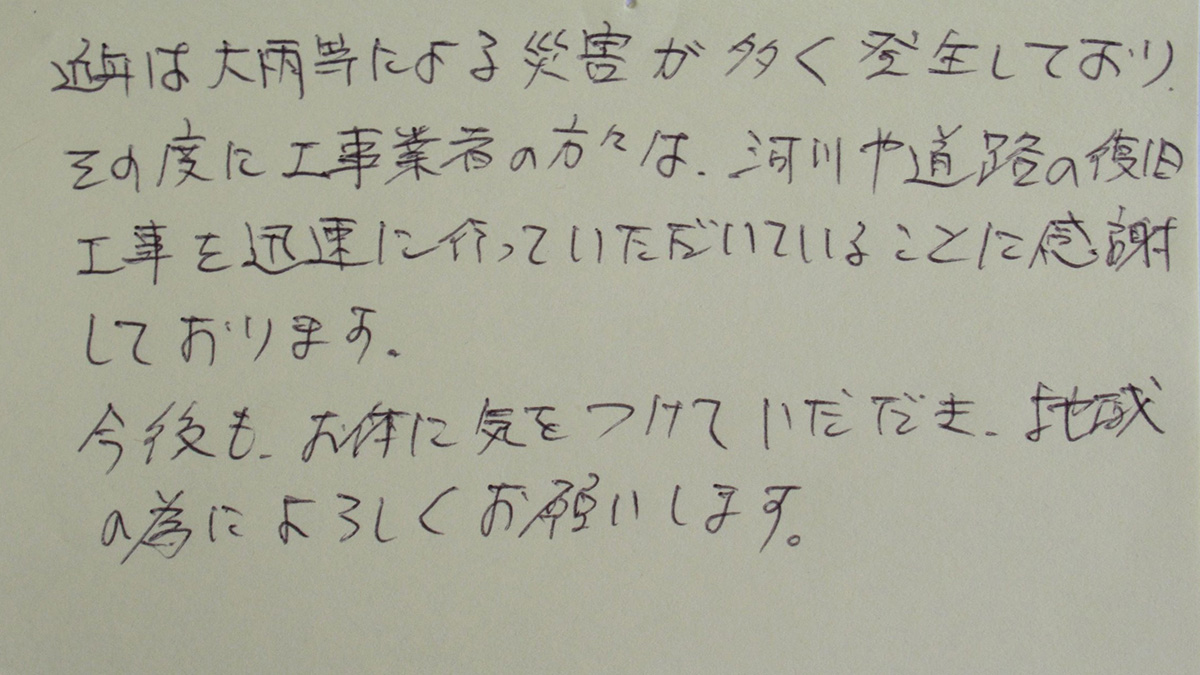 近年は大雨等による災害が多く発生しており、
その度に工事業者の方々は、河川や道路の復旧
工事を迅速に行っていただいていることに感謝
しております。
今後も、お体に気をつけていただき、地域
の為によろしくお願いします。